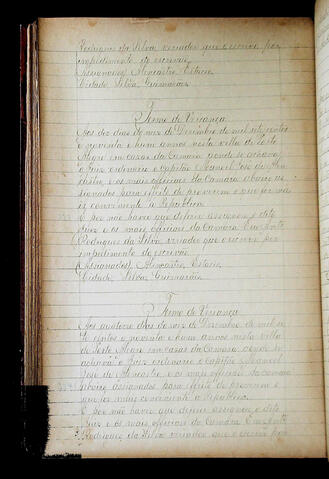 Rodrigues da Silva, vereador que o escrevi por
impedimento do escrivão
(Assignados) Alencastre, Estacio
Cidade, Silva, Guimarães
Termo de Veriança
Aos dez dias do mez de Dezembro de mil sete centos
e noventa e hum annos nesta villa de Porto
Alegre em casas da Camara aonde se achava
o Juiz ordinario o Capitão Manoel José de Alen
castre, e os mais officiaes da Camara abaixo as
signados para effeito de proverem o que for ma
is conveniente á Republica.
E por não haver que deferir assignou o dito
Juiz e os mais officiaes da Camara Eu
Rodrigues da Silva, vereador que o escrevi por
impedimento do escrivão
(Assignados), Alencastre, Estacio,
Cidade, Silva, Guimarães
Termo de Veriança
Aos quatorze dias do mez de Dezembro de mil se
te centos e noventa e hum annos nesta villa
de Porto Alegre em casas da Camara aonde se
achava o Juiz ordinario o Capitão Manoel
José de Alencastre, e os mais officiaes da Camara
abaixo assignados para effeito de proverem o
que for mais conveniente á Republica.
E por não haver que deferir assignou o dito
Juiz e os mais officiaes da Camara Eu
Rodrigues da Silva vereador que o escrevi por